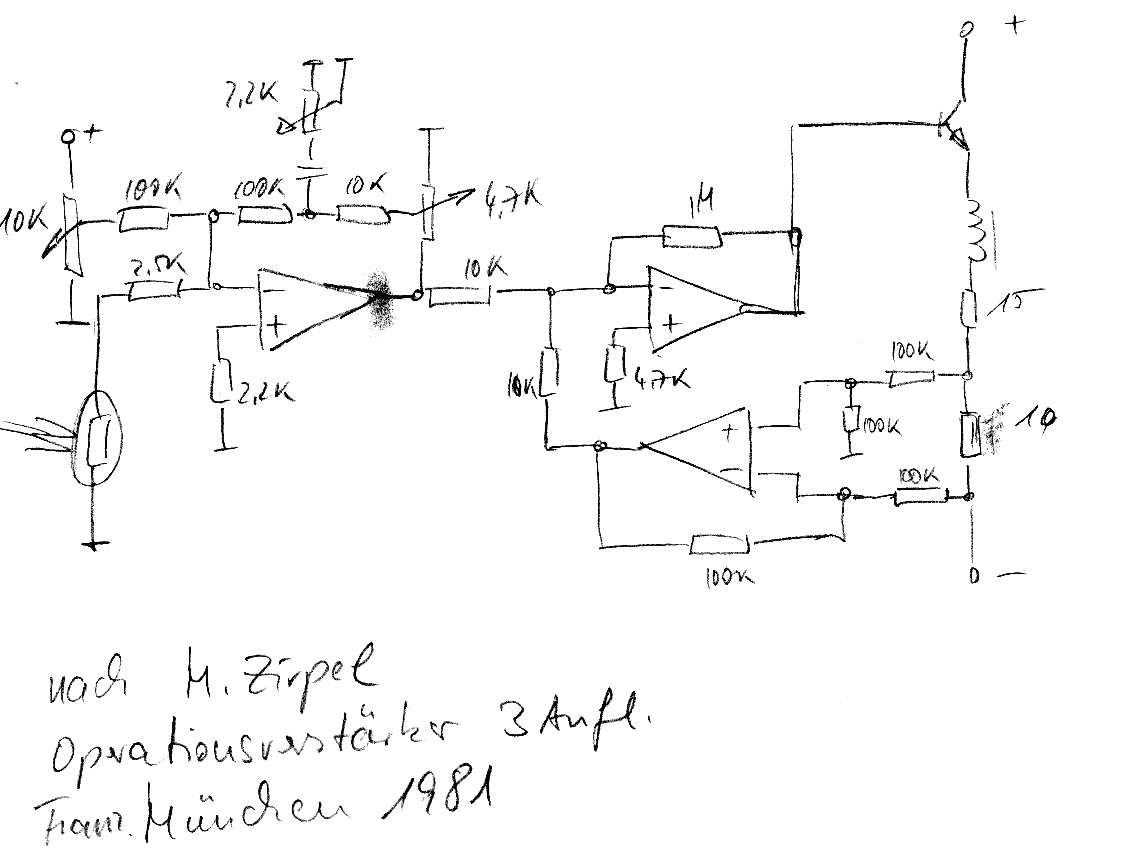 +
+
2,2K
10K
100K
100K
10K
4,7K
1M
2,5K
10K
−
+
−
+
2,2K
10K
4,7K
15
100K
100K
10
+
−
100K
100K
−
nach M. Zirpel
Operationsverstärker 3 Aufl.
Franz. München 1981